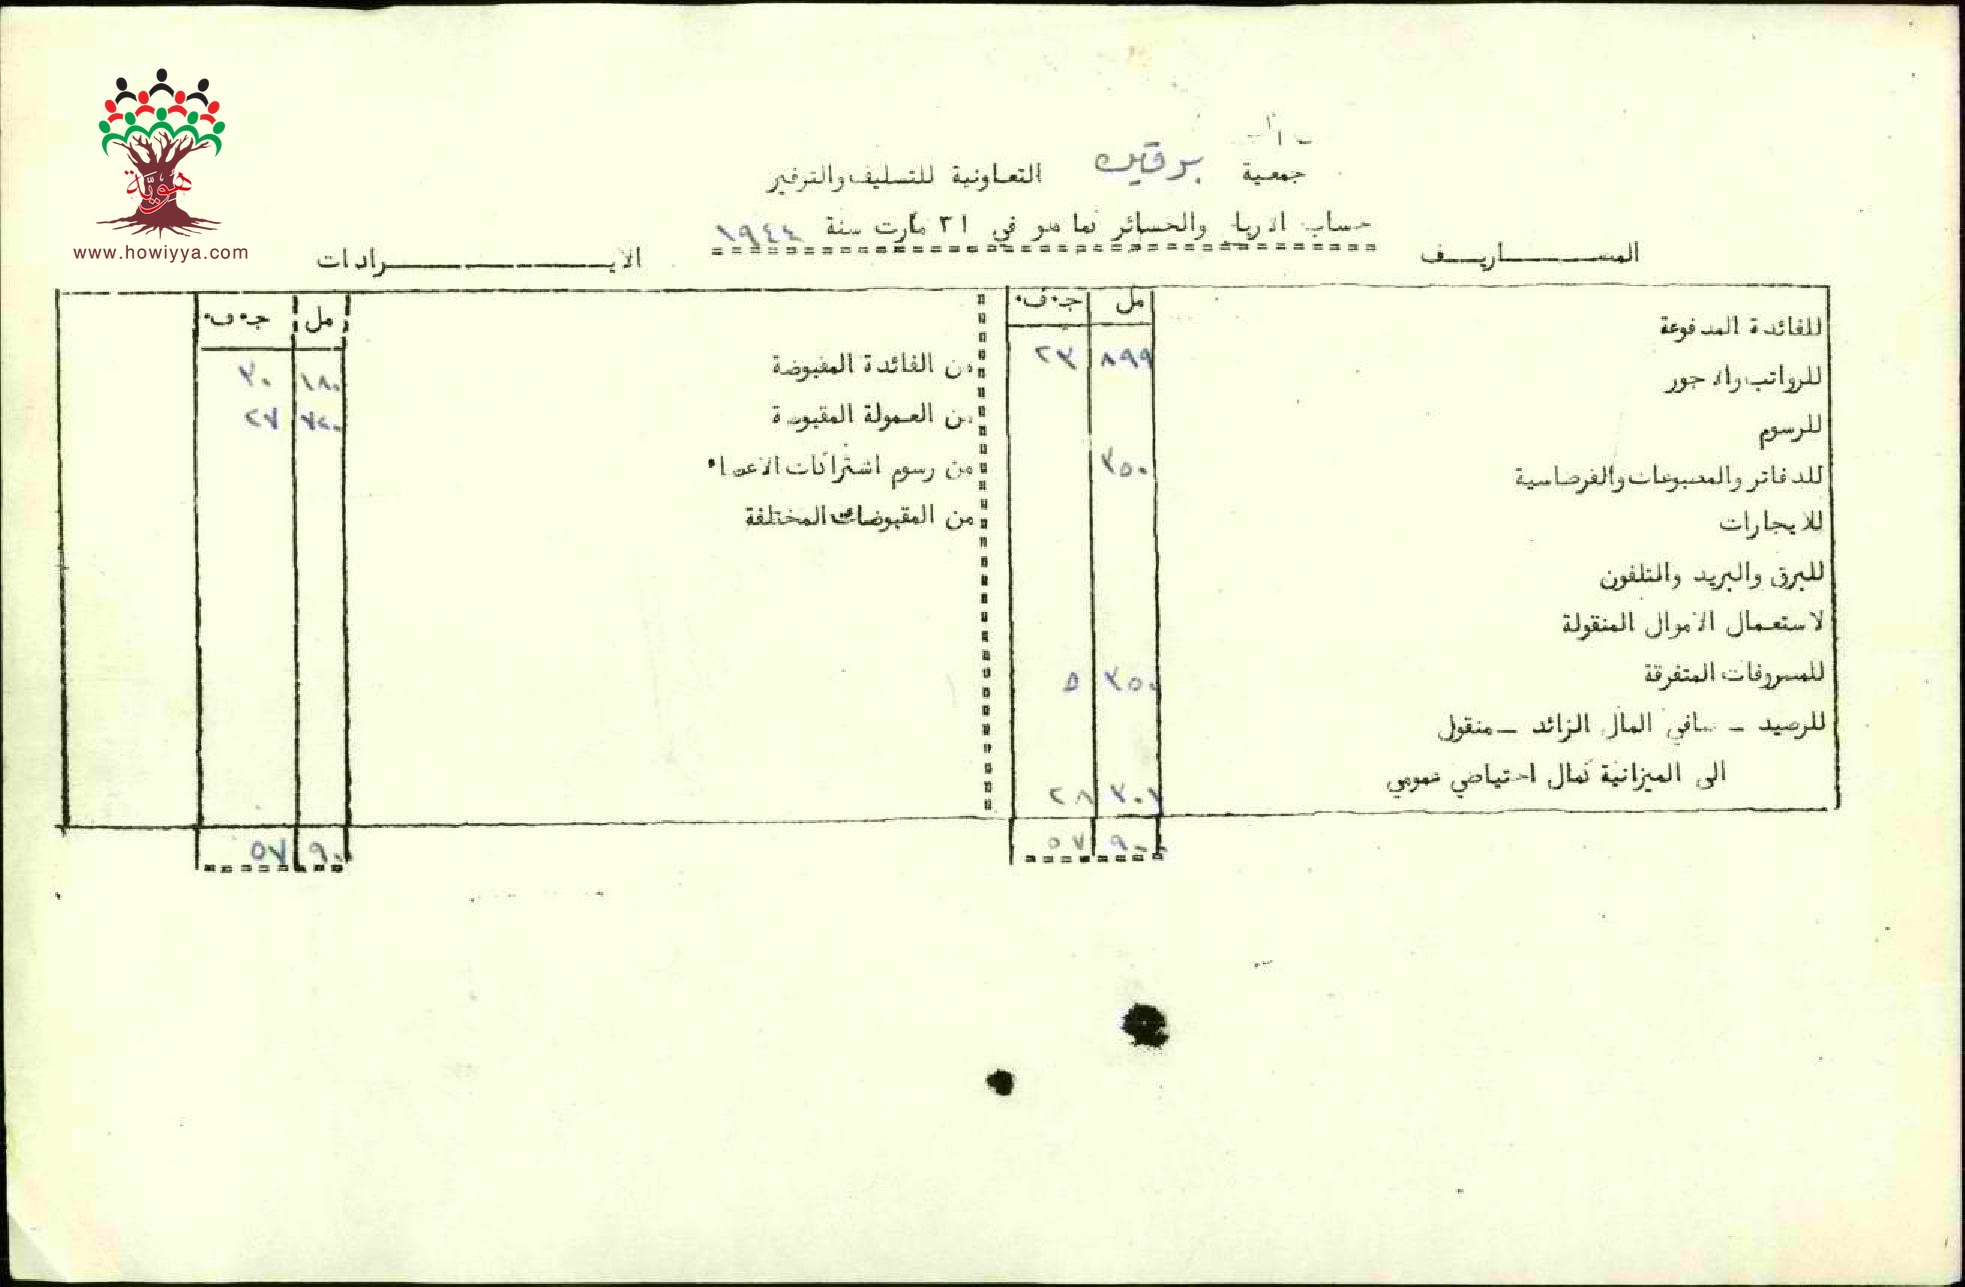 هوية
www.howiyya.com
جمعية برقين التعاونية للتسليف والتوفير
حساب الارباح والخسائر كما هو في ٣١ مارت سنة ١٩٤٤
المصاريف
الايرادات
مل ج.ف.
للفائدة المدفوعة ٨٩٩ ٢٣
للرواتب والاجور
للرسوم
للدفاتر والمطبوعات والقرطاسية ٣٥٠
للايجارات
للبرق والبريد والتلفون
لاستعمال الاموال المنقولة
للمصروفات المتفرقة ٣٥٠ ٥
للرصيد - صافي المال الزائد - منقول
الى الميزانية كمال احتياطي عمومي ٣٠١ ٢٨
٩٠٠ ٥٧
مل ج.ف.
من الفائدة المقبوضة ١٨٠ ٣٠
من العمولة المقبوضة ٧٢٠ ٢٧
من رسوم اشتراكات الاعضاء
من المقبوضات المختلفة
٩٠٠ ٥٧